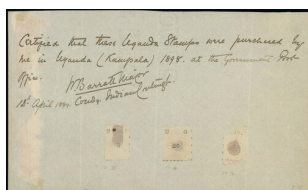 Certified that these Uganda Stamps were purchased by
me in Uganda (Kampala) 1898. at the Government Post
Office.
W Barratt Major
18th April 1899. Comdg. Indian Contingt.